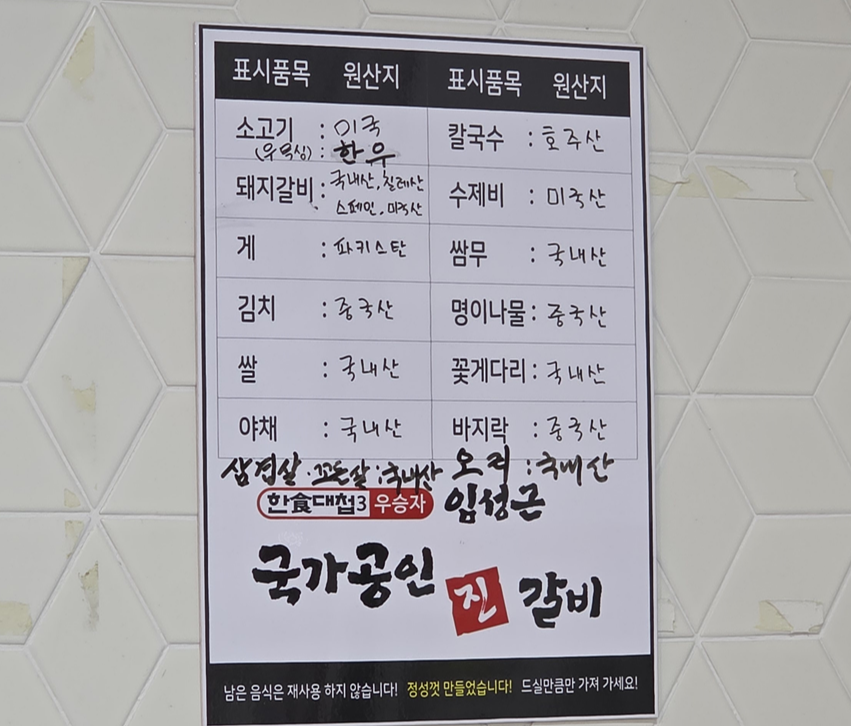 표시품목 원산지 표시품목 원산지
소고기 : 미국 칼국수 : 호주산
(우목심) : 한우
돼지갈비 : 국내산, 칠레산 수제비 : 미국산
스페인, 미국산
게 : 파키스탄 쌈무 : 국내산
김치 : 중국산 명이나물 : 중국산
쌀 : 국내산 꽃게다리 : 국내산
야채 : 국내산 바지락 : 중국산
삼겹살 · 꼬든살 : 국내산 오리 : 국내산
한食대첩3 우승자 임성근
국가공인 진 갈비
남은 음식은 재사용 하지 않습니다! 정성껏 만들었습니다! 드실만큼만 가져 가세요!